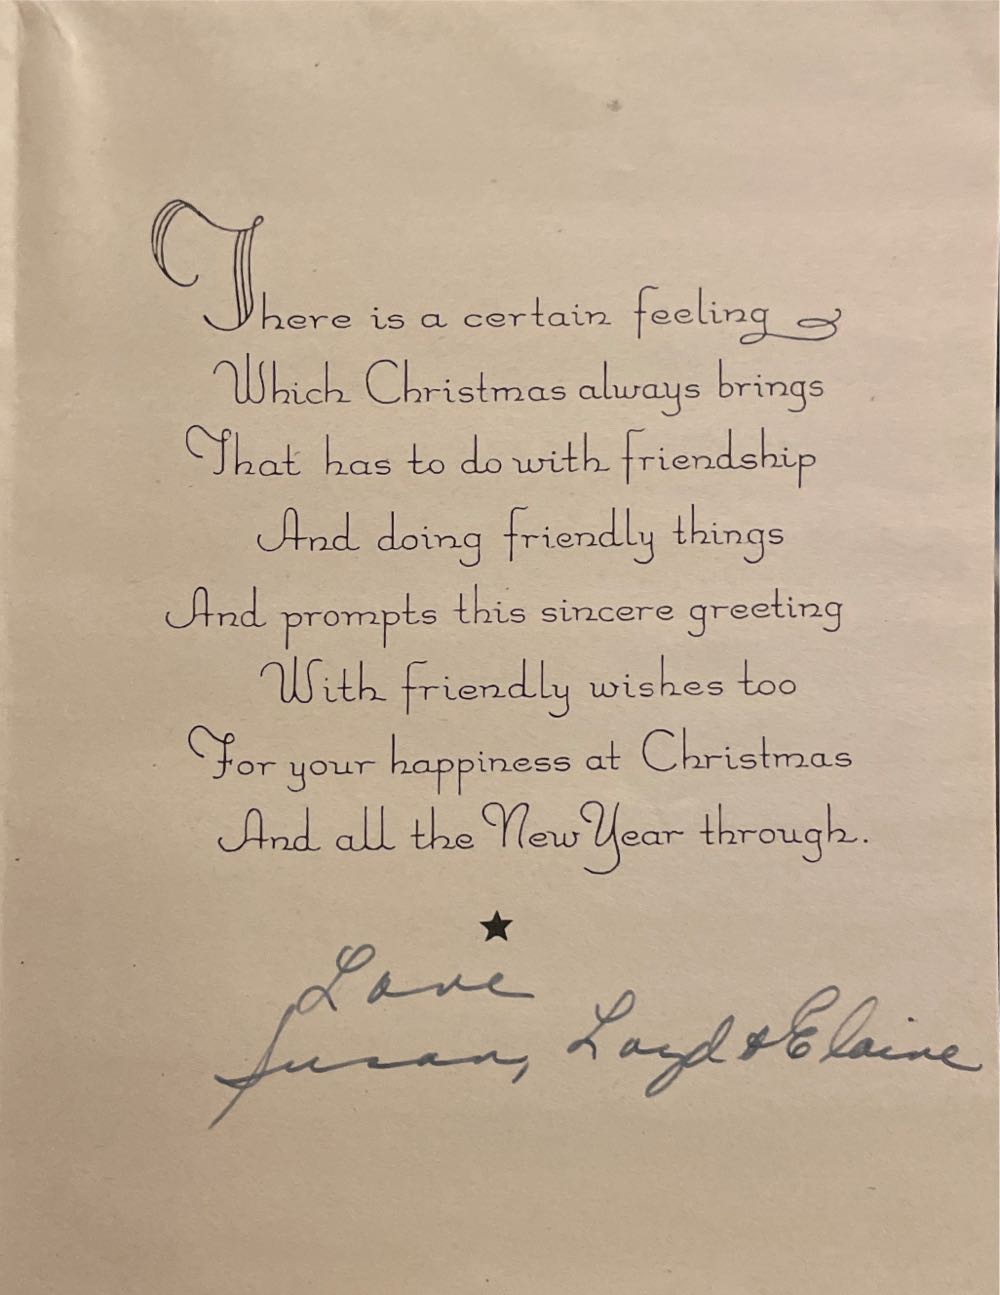 There is a certain feeling
Which Christmas always brings
That has to do with friendship
And doing friendly things
And prompts this sincere greeting
With friendly wishes too
For your happiness at Christmas
And all the New Year through.
Love
Susan, Loyd & Elaine